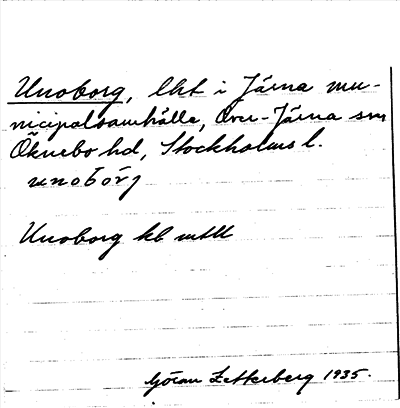 Unoborg, lht i Järna mu-
nicipalsamhälle, Över-Järna sn
Öknebo hd, Stockholms l.
Unoborg kb
Göran Zetterberg 1935.